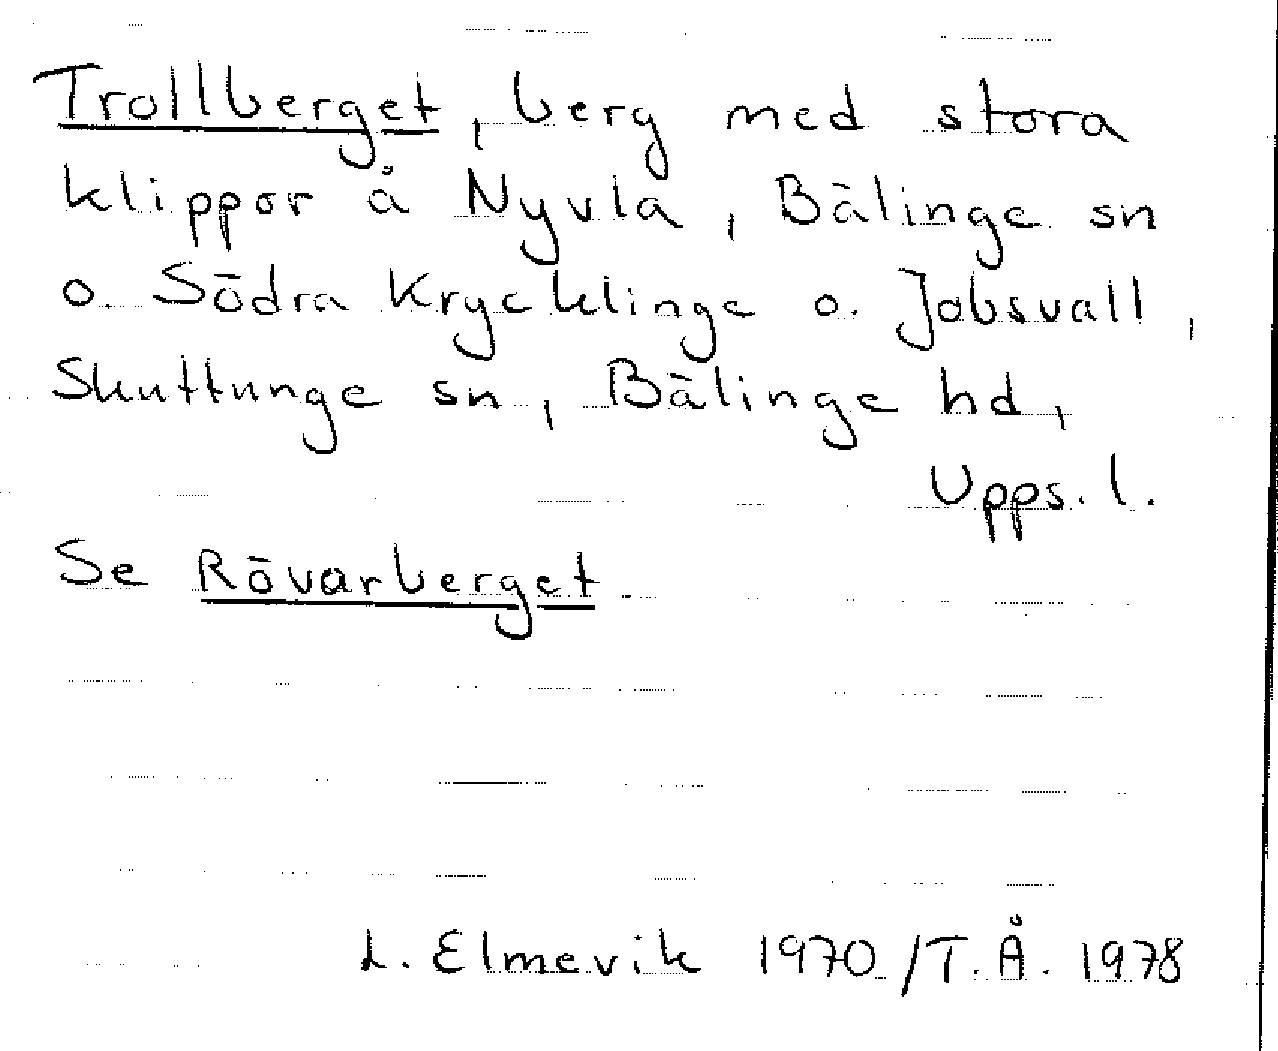 Trollberget, berg med stora
klippor å Nyvla, Bälinge sn
o. Södra Krycklinge o. Jobsvall,
Skuttunge sn, Bälinge hd,
Upps. l.
Se Rövarberget
L. Elmevik 1970/T.Å. 1978